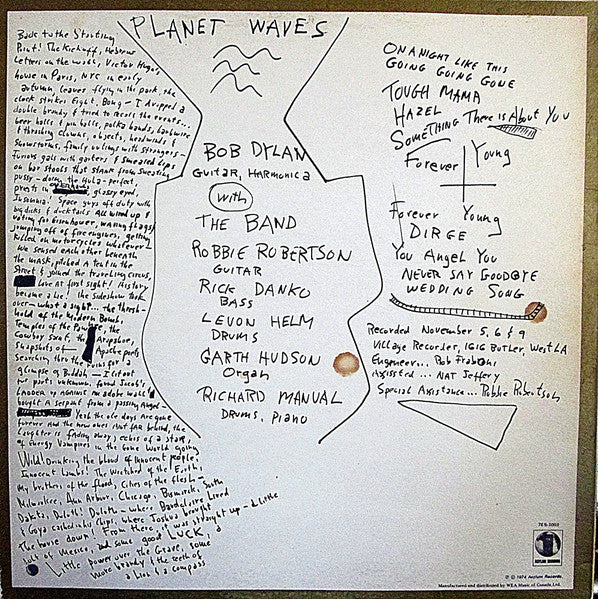 PLANET WAVES
Back to the Starting
Point! The Kickoff, Hebrew
Letters on the wall, Victor Hugo's
house in Paris, NYC in early
autumn, leaves flying in the park, the
clock strikes Eight, Bong— I dropped a
double brandy & tried to recall the events..
beer halls & pin balls, polka bands, barbwire
& thrashing clowns, objects, headwinds &
snowstorms, family outings with strangers—
Furious gals with garters & smeared lips
on bar stools that stank from sweating
pussy— doing the Hula— perfect,
priests in overhauls, glassy eyed,
Insomnia! Space guys off duty with
big dicks & ducktails all wired up &
voting for Eisenhower, waving flags &
jumping off of fire engines, getting
killed on motorcycles whatever—
we sensed each other beneath
the mask, pitched a tent in the
street & joined the traveling circus,
love at first sight! History
became a lie! the sideshow took
over— what a sight... the thresh-
hold of the Modern Bomb,
Temples of the Pawnee, the
Cowboy Saint, the Arapahoe,
Snapshots of Apache poets
searching thru the ruins for a
glimpse of Buddah— I lit out
for parts unknown, found Jacob's
Ladder up against an adobe wall &
bought a serpent from a passing Angel—
Yeah the ole days are gone
forever and the new ones aint far behind, the
Laughter is fading away, echos of a star,
of Energy Vampires in the Gone World going
Wild! Drinking the blood of innocent people,
Innocent Lambs! The Wretched of the Earth,
my brothers of the flood, Cities of the flesh—
Milwaukee, Ann Arbor, Chicago, Bismarck, South
Dakota, Duluth! Duluth— where Baudelaire Lived
& Goya cashed in his Chips, where Joshua brought
the house down! From there, it was straight up— a little
jolt of Mexico, and some good LUCK, a
Little power over the Grave, some
more brandy & the teeth of
a Lion & a compass
BOB DYLAN
Guitar, Harmonica
with
THE BAND
ROBBIE ROBERTSON
GUITAR
RICK DANKO
BASS
LEVON HELM
DRUMS
GARTH HUDSON
Organ
RICHARD MANUAL
DRUMS, Piano
ON A NIGHT LIKE THIS
GOING GOING GONE
TOUGH MAMA
HAZEL
SOMETHING There is About You
Forever Young
Forever Young
DIRGE
You Angel You
NEVER SAY GOODBYE
WEDDING SONG
Recorded November 5, 6 & 9
Village Recorder, 1616 Butler, West LA
Engineer... Rob Fraboni
Assisted... NAT Jeffery
Special Assistance... Robbie Robertson
7ES-1003
ASYLUM RECORDS
℗ © 1974 Asylum Records.
Manufactured and distributed by WEA Music of Canada, Ltd.